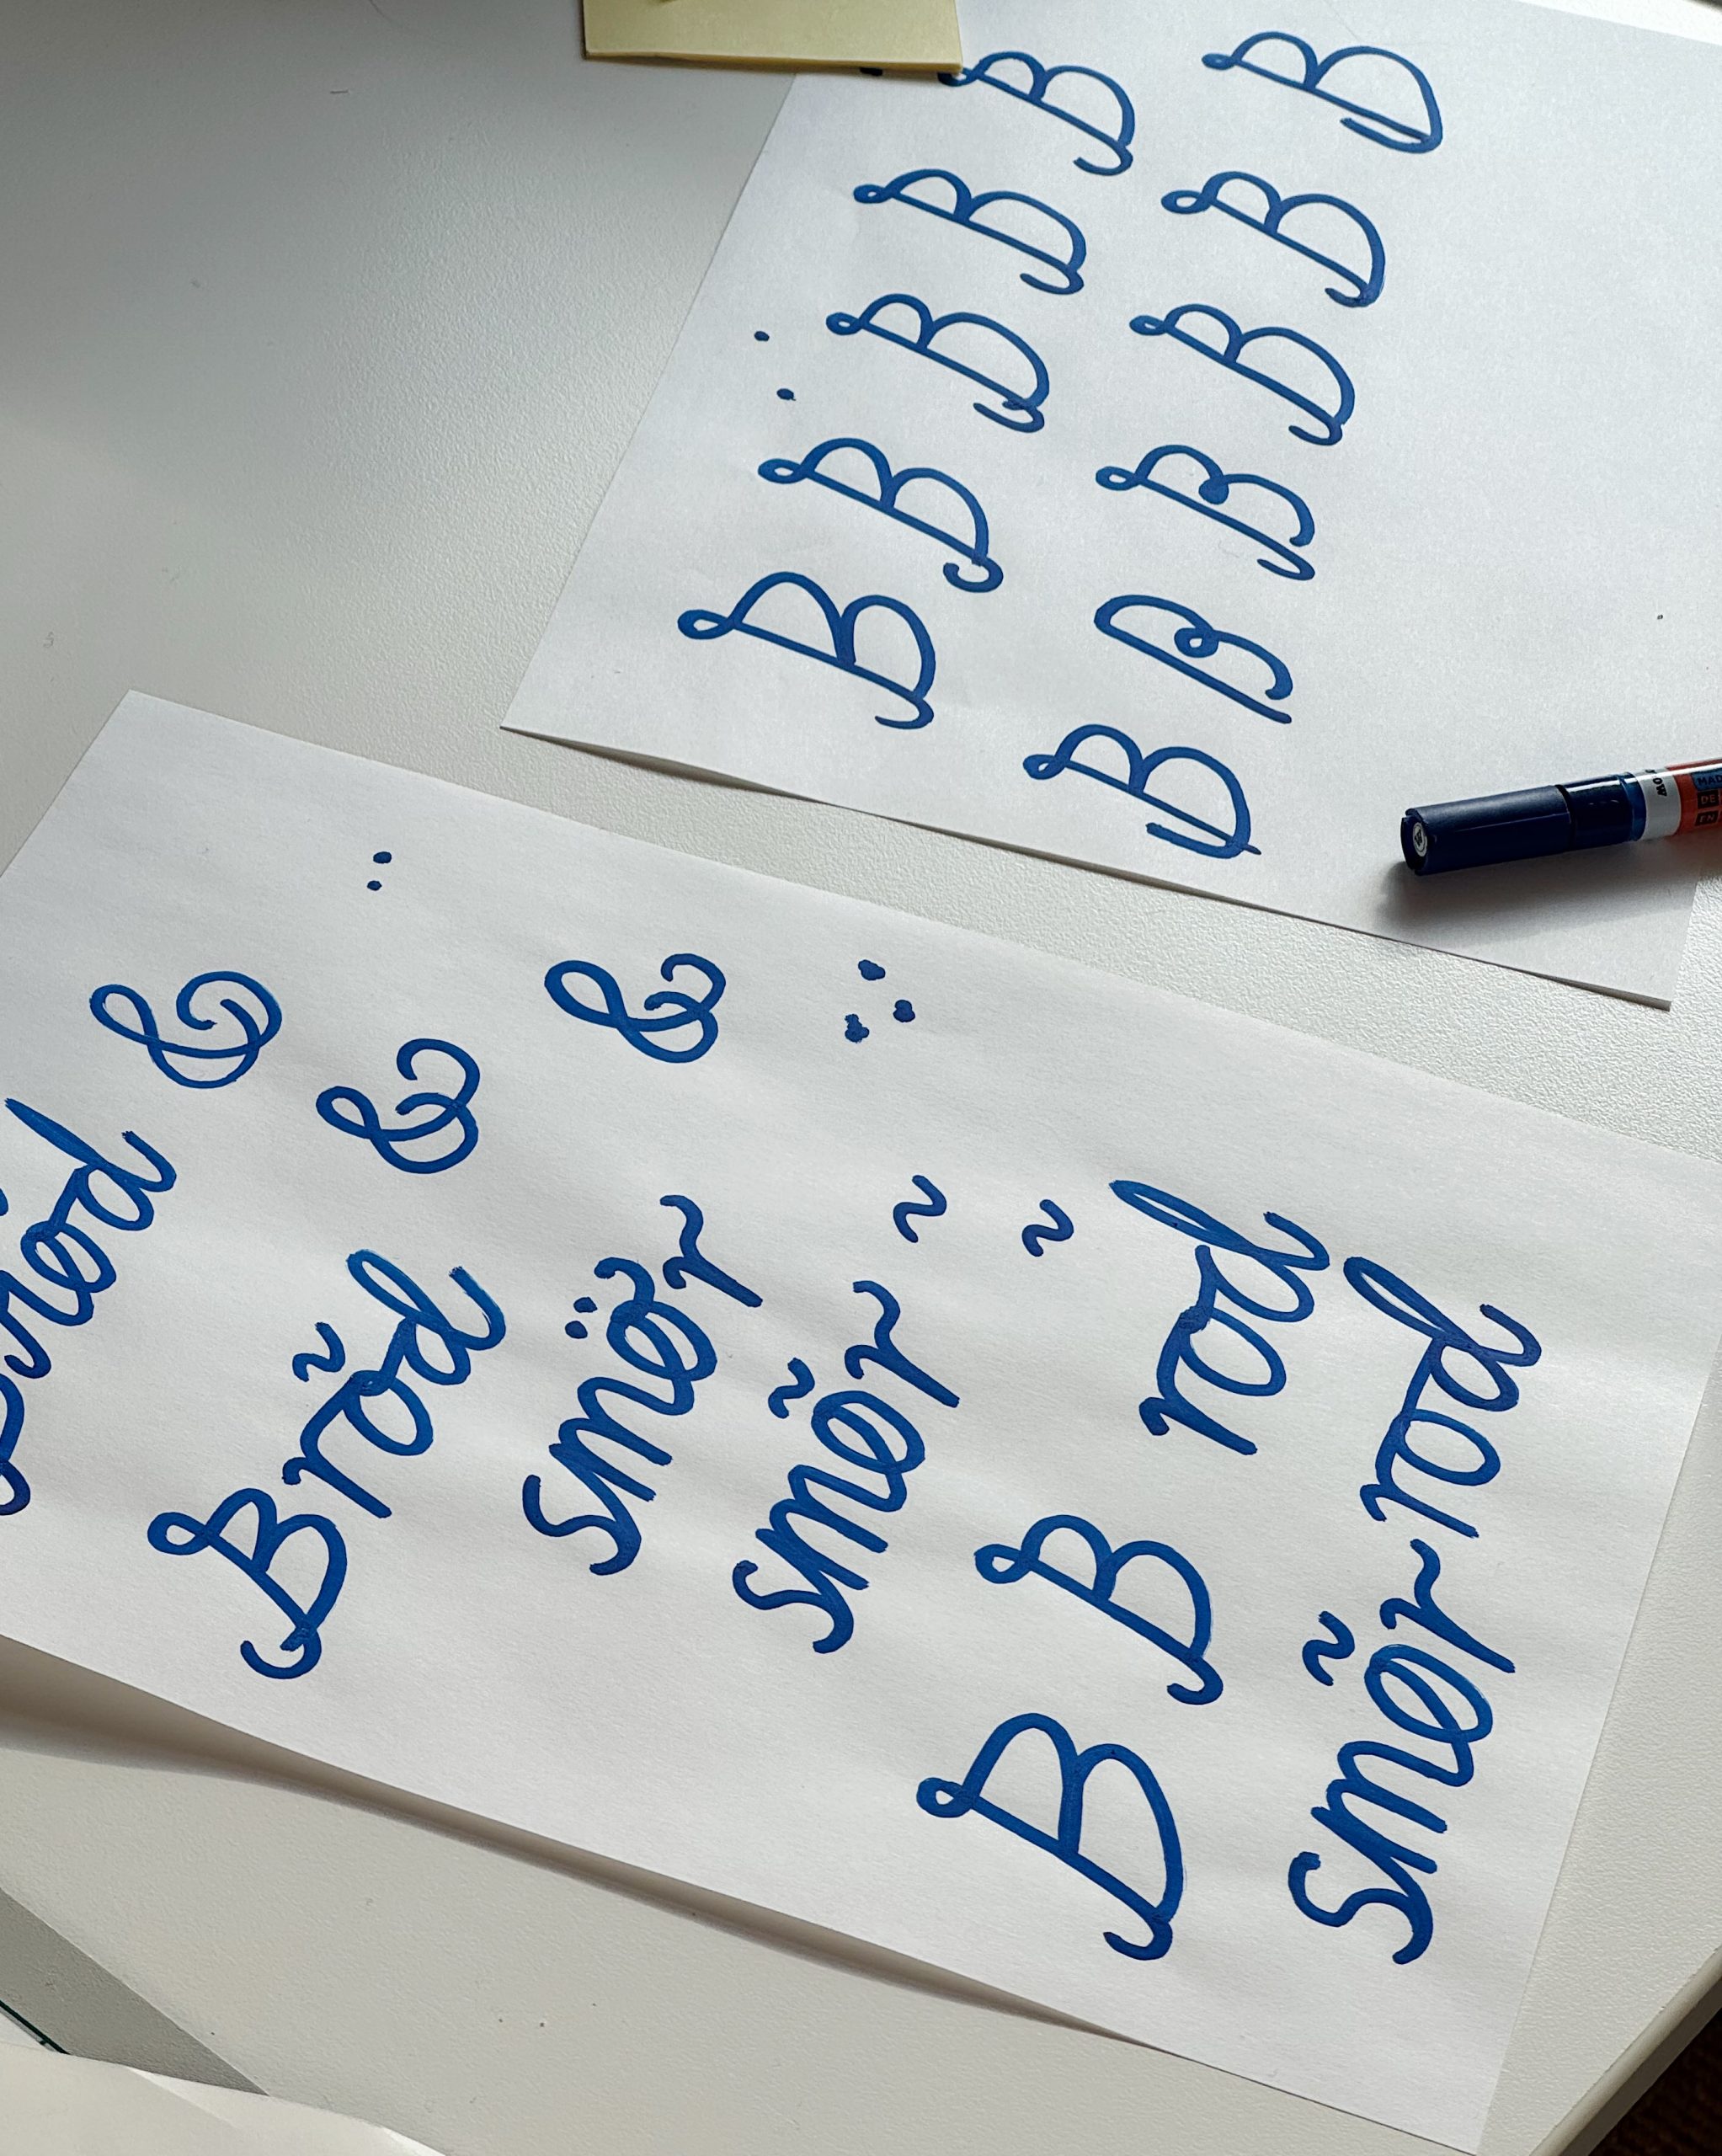 B B B B B
B B B B B B
Bröd &
Bröd &
smör &
smör ~
B B ~ rod
smör rod
DE
EN